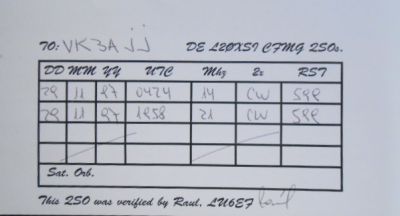 TO: VK3Ajj DE L20XSI CFMG 2SOs.
DD MM YY UTC Mhz 2x RST
29 11 97 0424 14 CW 599
29 11 97 1958 21 CW 599
Sat. Orb.
This 2SO was verified by Raul, LU6EF